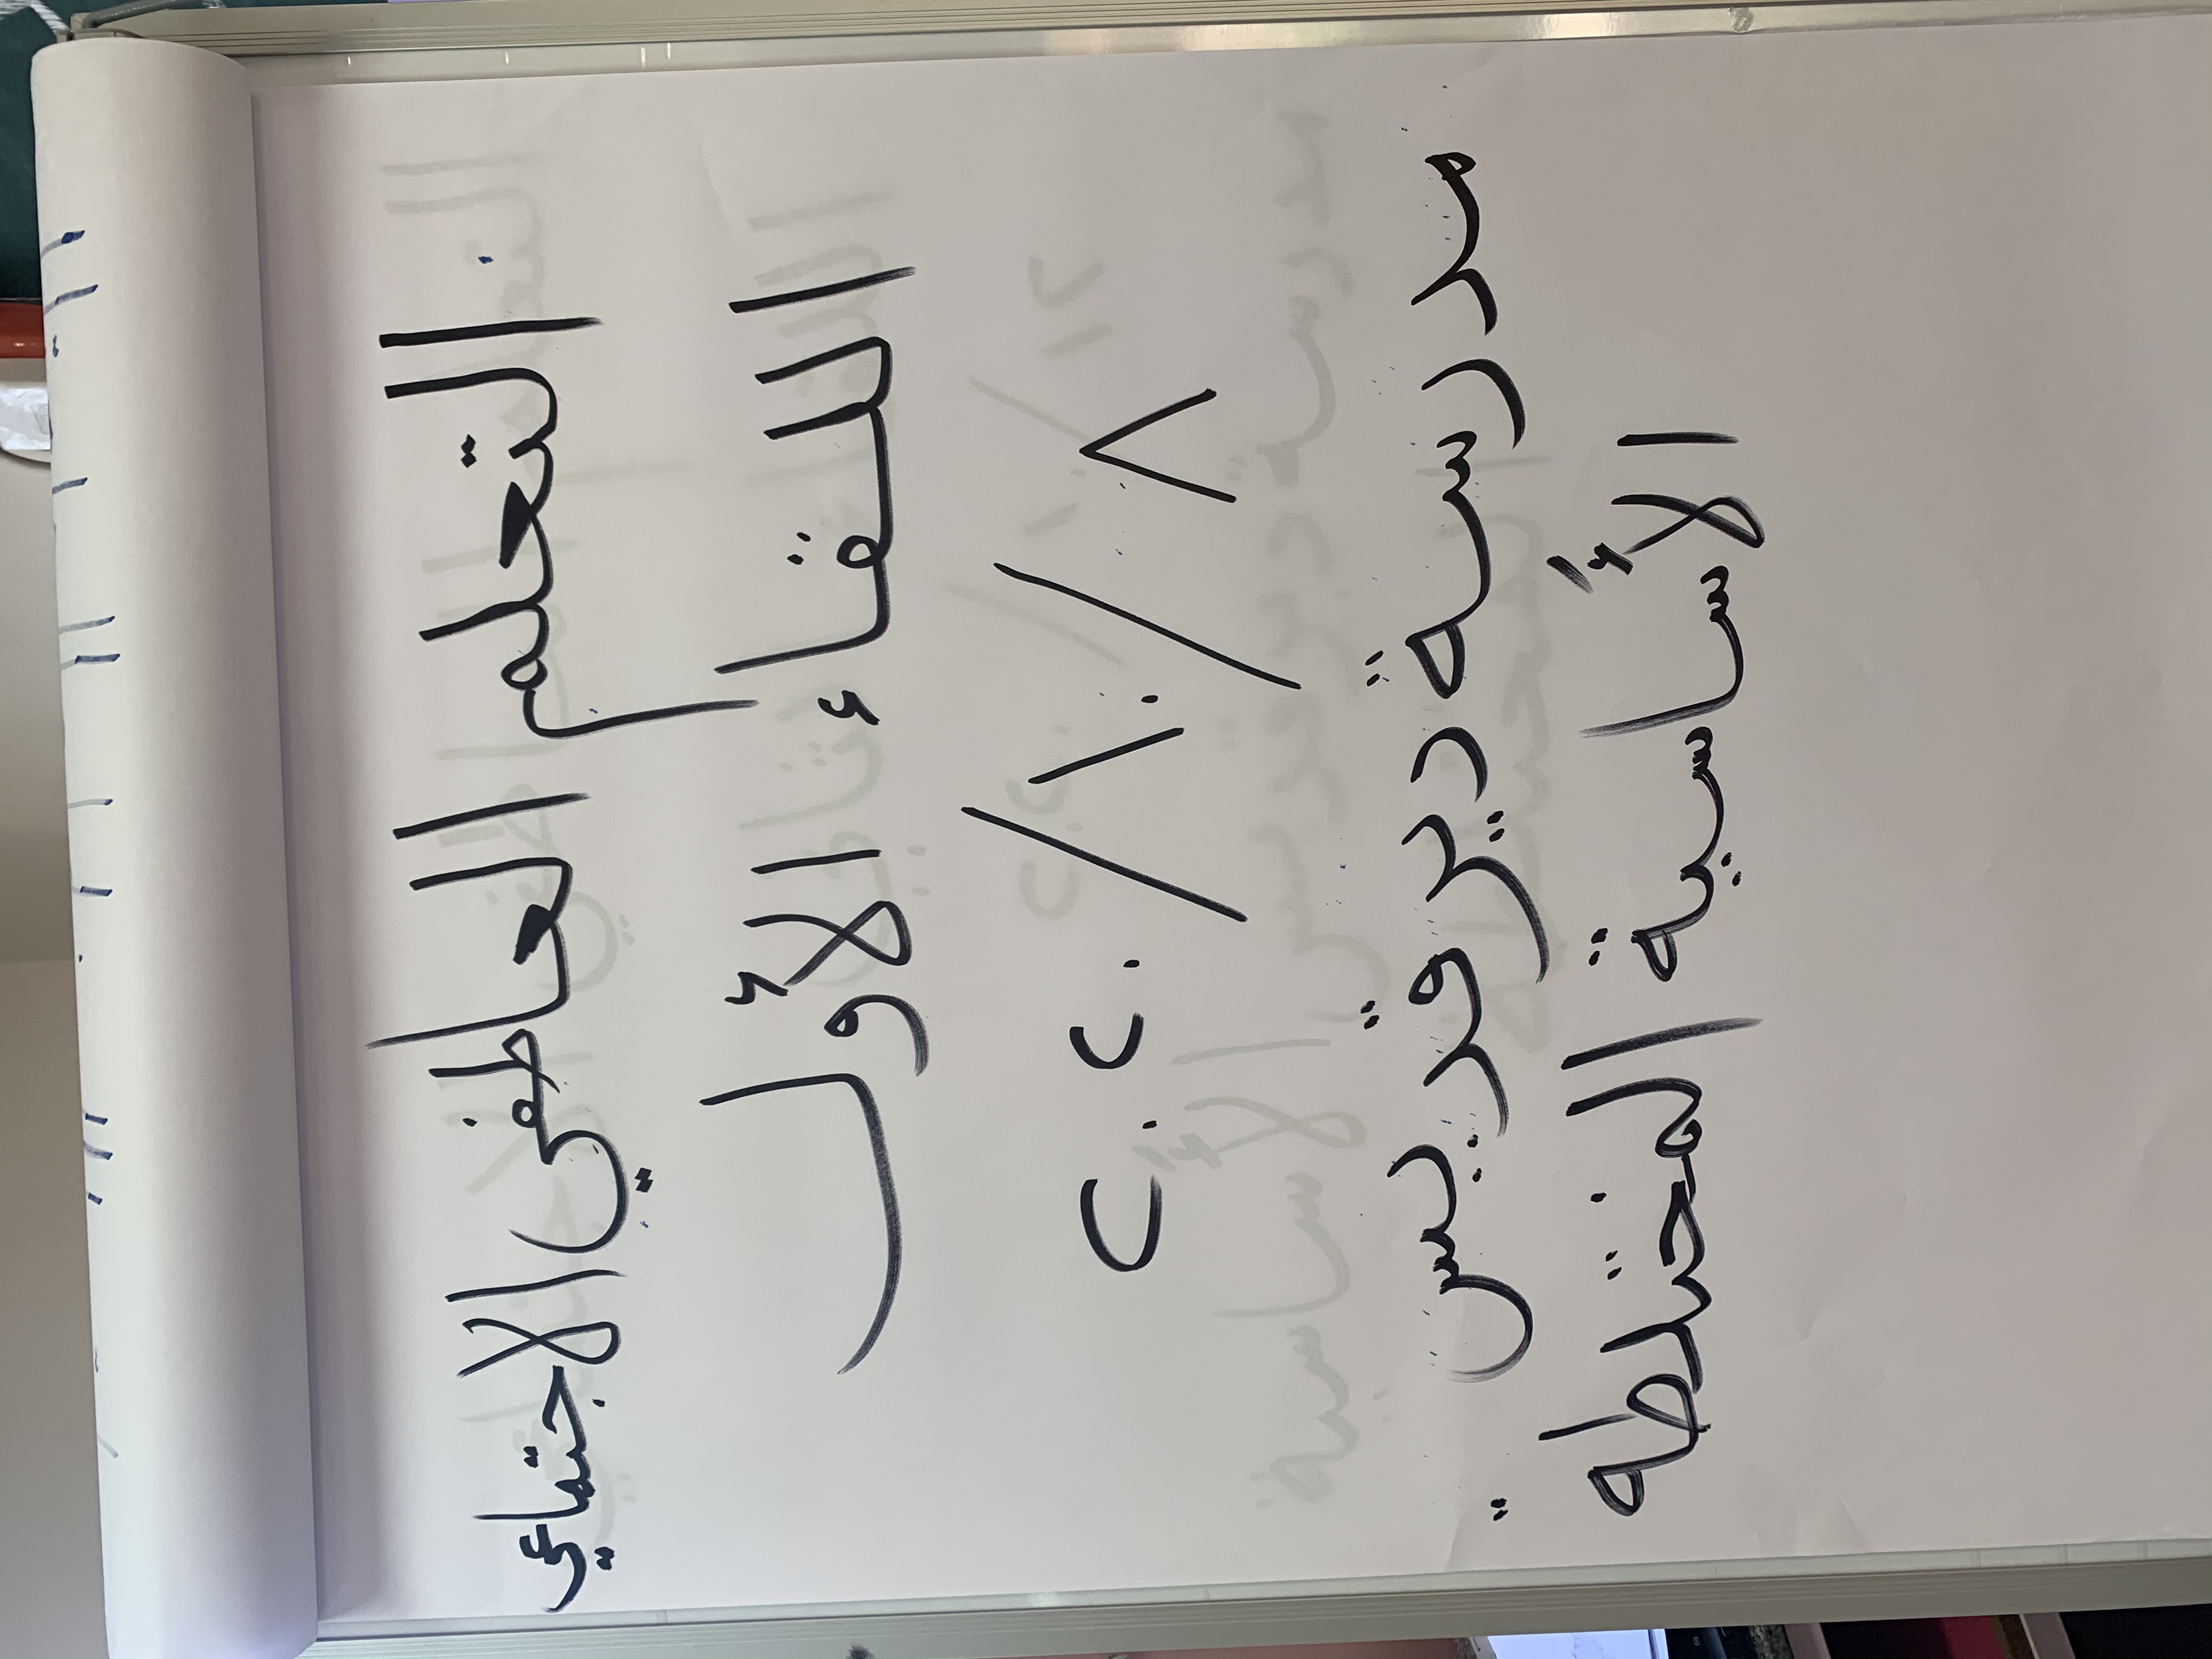 التعلم العاطفي الاجتماعي
اللقاء الأول
٨/١٠/٢٠٢٠
مدرسة دير قديس
الأساسية المختلطة